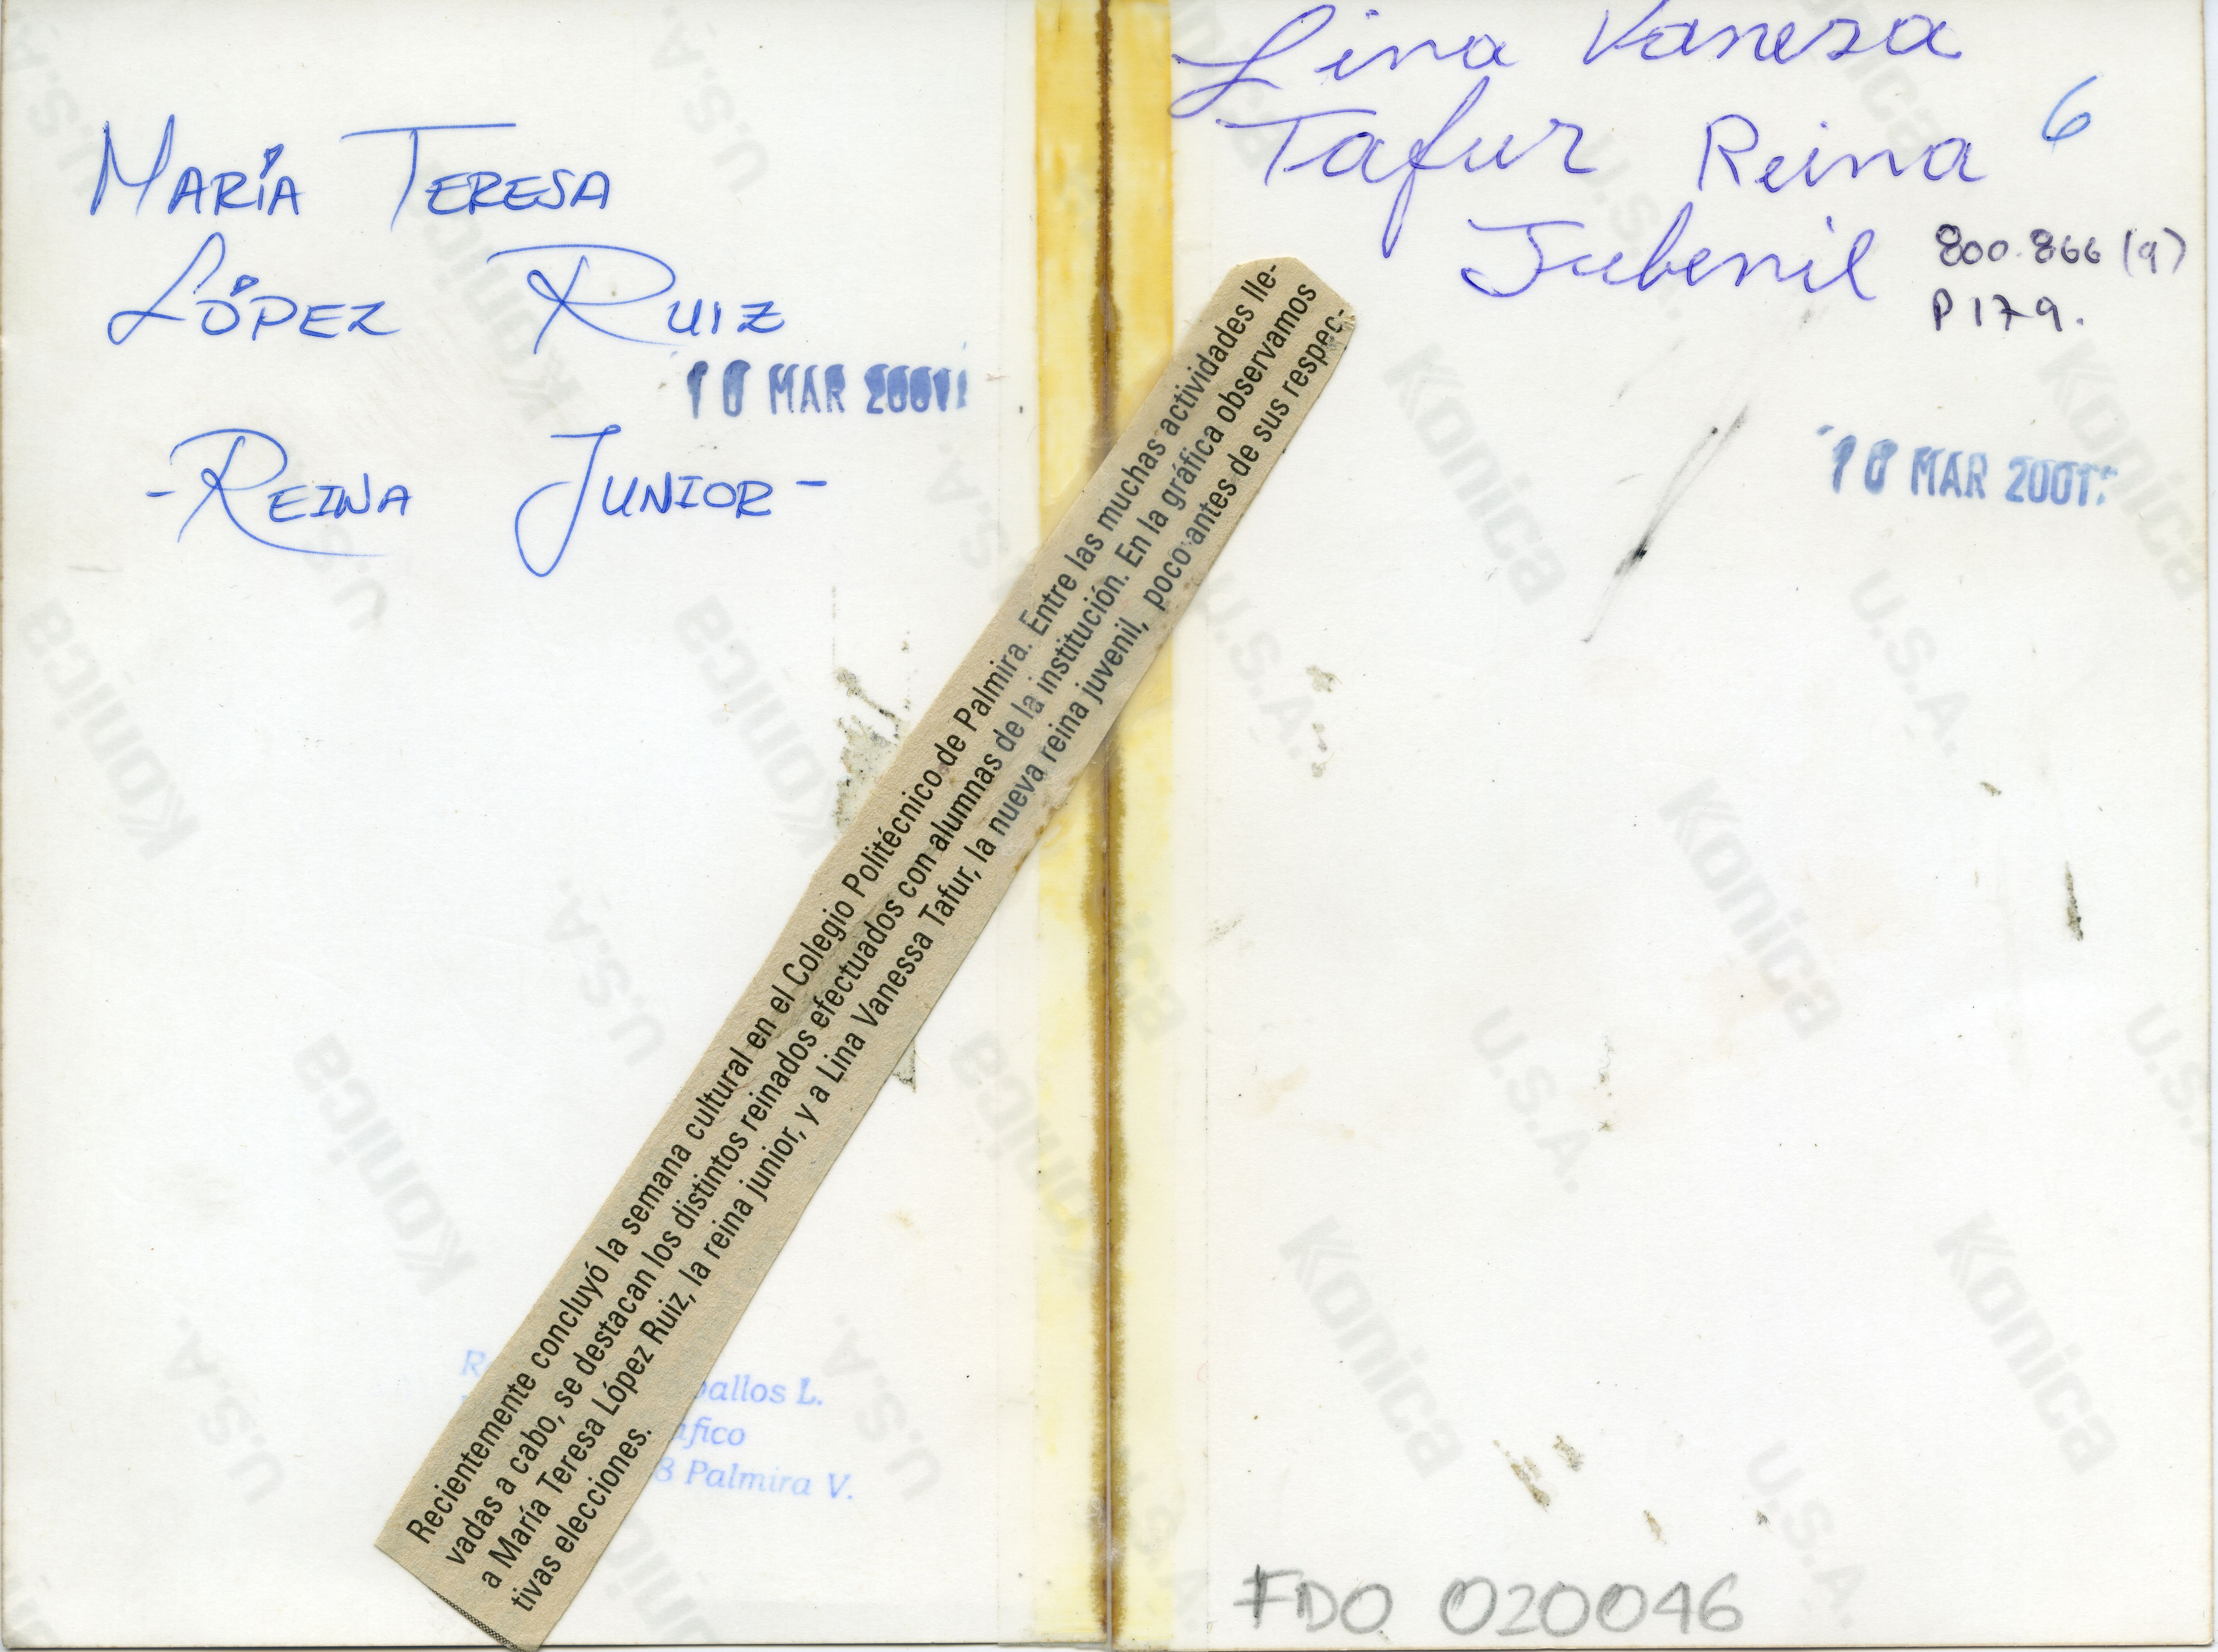 María Teresa
López Ruiz
10 MAR 2001
-Reina Junior-
Lina Vanesa
Tafur Reina 6
Jubenil
800.866 (9)
P179.
10 MAR 2001
Recientemente concluyó la semana cultural en el Colegio Politécnico de Palmira. Entre las muchas actividades lle-
vadas a cabo, se destacan los distintos reinados efectuados con alumnas de la institución. En la gráfica observamos
a María Teresa López Ruiz, la reina junior, y a Lina Vanessa Tafur, la nueva reina juvenil, poco antes de sus respec-
tivas elecciones.
L.
8 Palmira V.
FDO 020046
Konica
U.S.A.